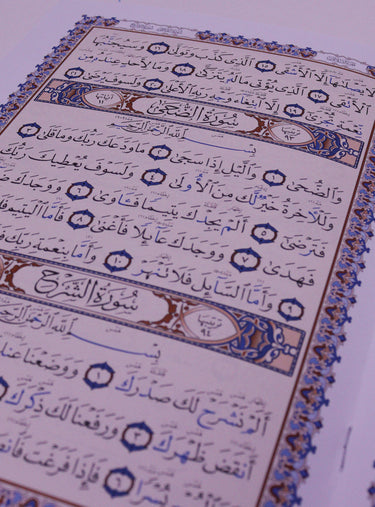 لَا يَصْلَىٰهَآ إِلَّا ٱلْأَشْقَى ١٥ ٱلَّذِى كَذَّبَ وَتَوَلَّىٰ ١٦ وَسَيُجَنَّبُهَا
ٱلْأَتْقَى ١٧ ٱلَّذِى يُؤْتِى مَالَهُۥ يَتَزَكَّىٰ ١٨ وَمَا لِأَحَدٍ عِندَهُۥ مِن
نِّعْمَةٍ تُجْزَىٰٓ ١٩ إِلَّا ٱبْتِغَآءَ وَجْهِ رَبِّهِ ٱلْأَعْلَىٰ ٢٠ وَلَسَوْفَ يَرْضَىٰ ٢١
ترتيبها ٩٣ سُورَةُ الضُّحَىٰ آياتها ١١
بِسْمِ ٱللَّهِ ٱلرَّحْمَٰنِ ٱلرَّحِيمِ
وَٱلضُّحَىٰ ١ وَٱلَّيْلِ إِذَا سَجَىٰ ٢ مَا وَدَّعَكَ رَبُّكَ وَمَا قَلَىٰ ٣
وَلَلْءَاخِرَةُ خَيْرٌ لَّكَ مِنَ ٱلْأُولَىٰ ٤ وَلَسَوْفَ يُعْطِيكَ رَبُّكَ
فَتَرْضَىٰٓ ٥ أَلَمْ يَجِدْكَ يَتِيمًا فَـَٔاوَىٰ ٦ وَوَجَدَكَ
فَهَدَىٰ ٧ وَوَجَدَكَ عَآئِلًا فَأَغْنَىٰ ٨ فَأَمَّا ٱلْيَتِيمَ
٩ وَأَمَّا ٱلسَّآئِلَ فَلَا تَنْهَرْ ١٠ وَأَمَّا بِنِعْمَةِ رَبِّكَ
ترتيبها ٩٤ سُورَةُ الشَّرْحِ
بِسْمِ ٱللَّهِ ٱلرَّحْمَٰنِ ٱلرَّحِيمِ
أَلَمْ نَشْرَحْ لَكَ صَدْرَكَ ١ وَوَضَعْنَا
أَنقَضَ ظَهْرَكَ ٣ وَرَفَعْنَا لَكَ ذِكْرَكَ
يُسْرًا ٦ فَإِذَا فَرَغْتَ